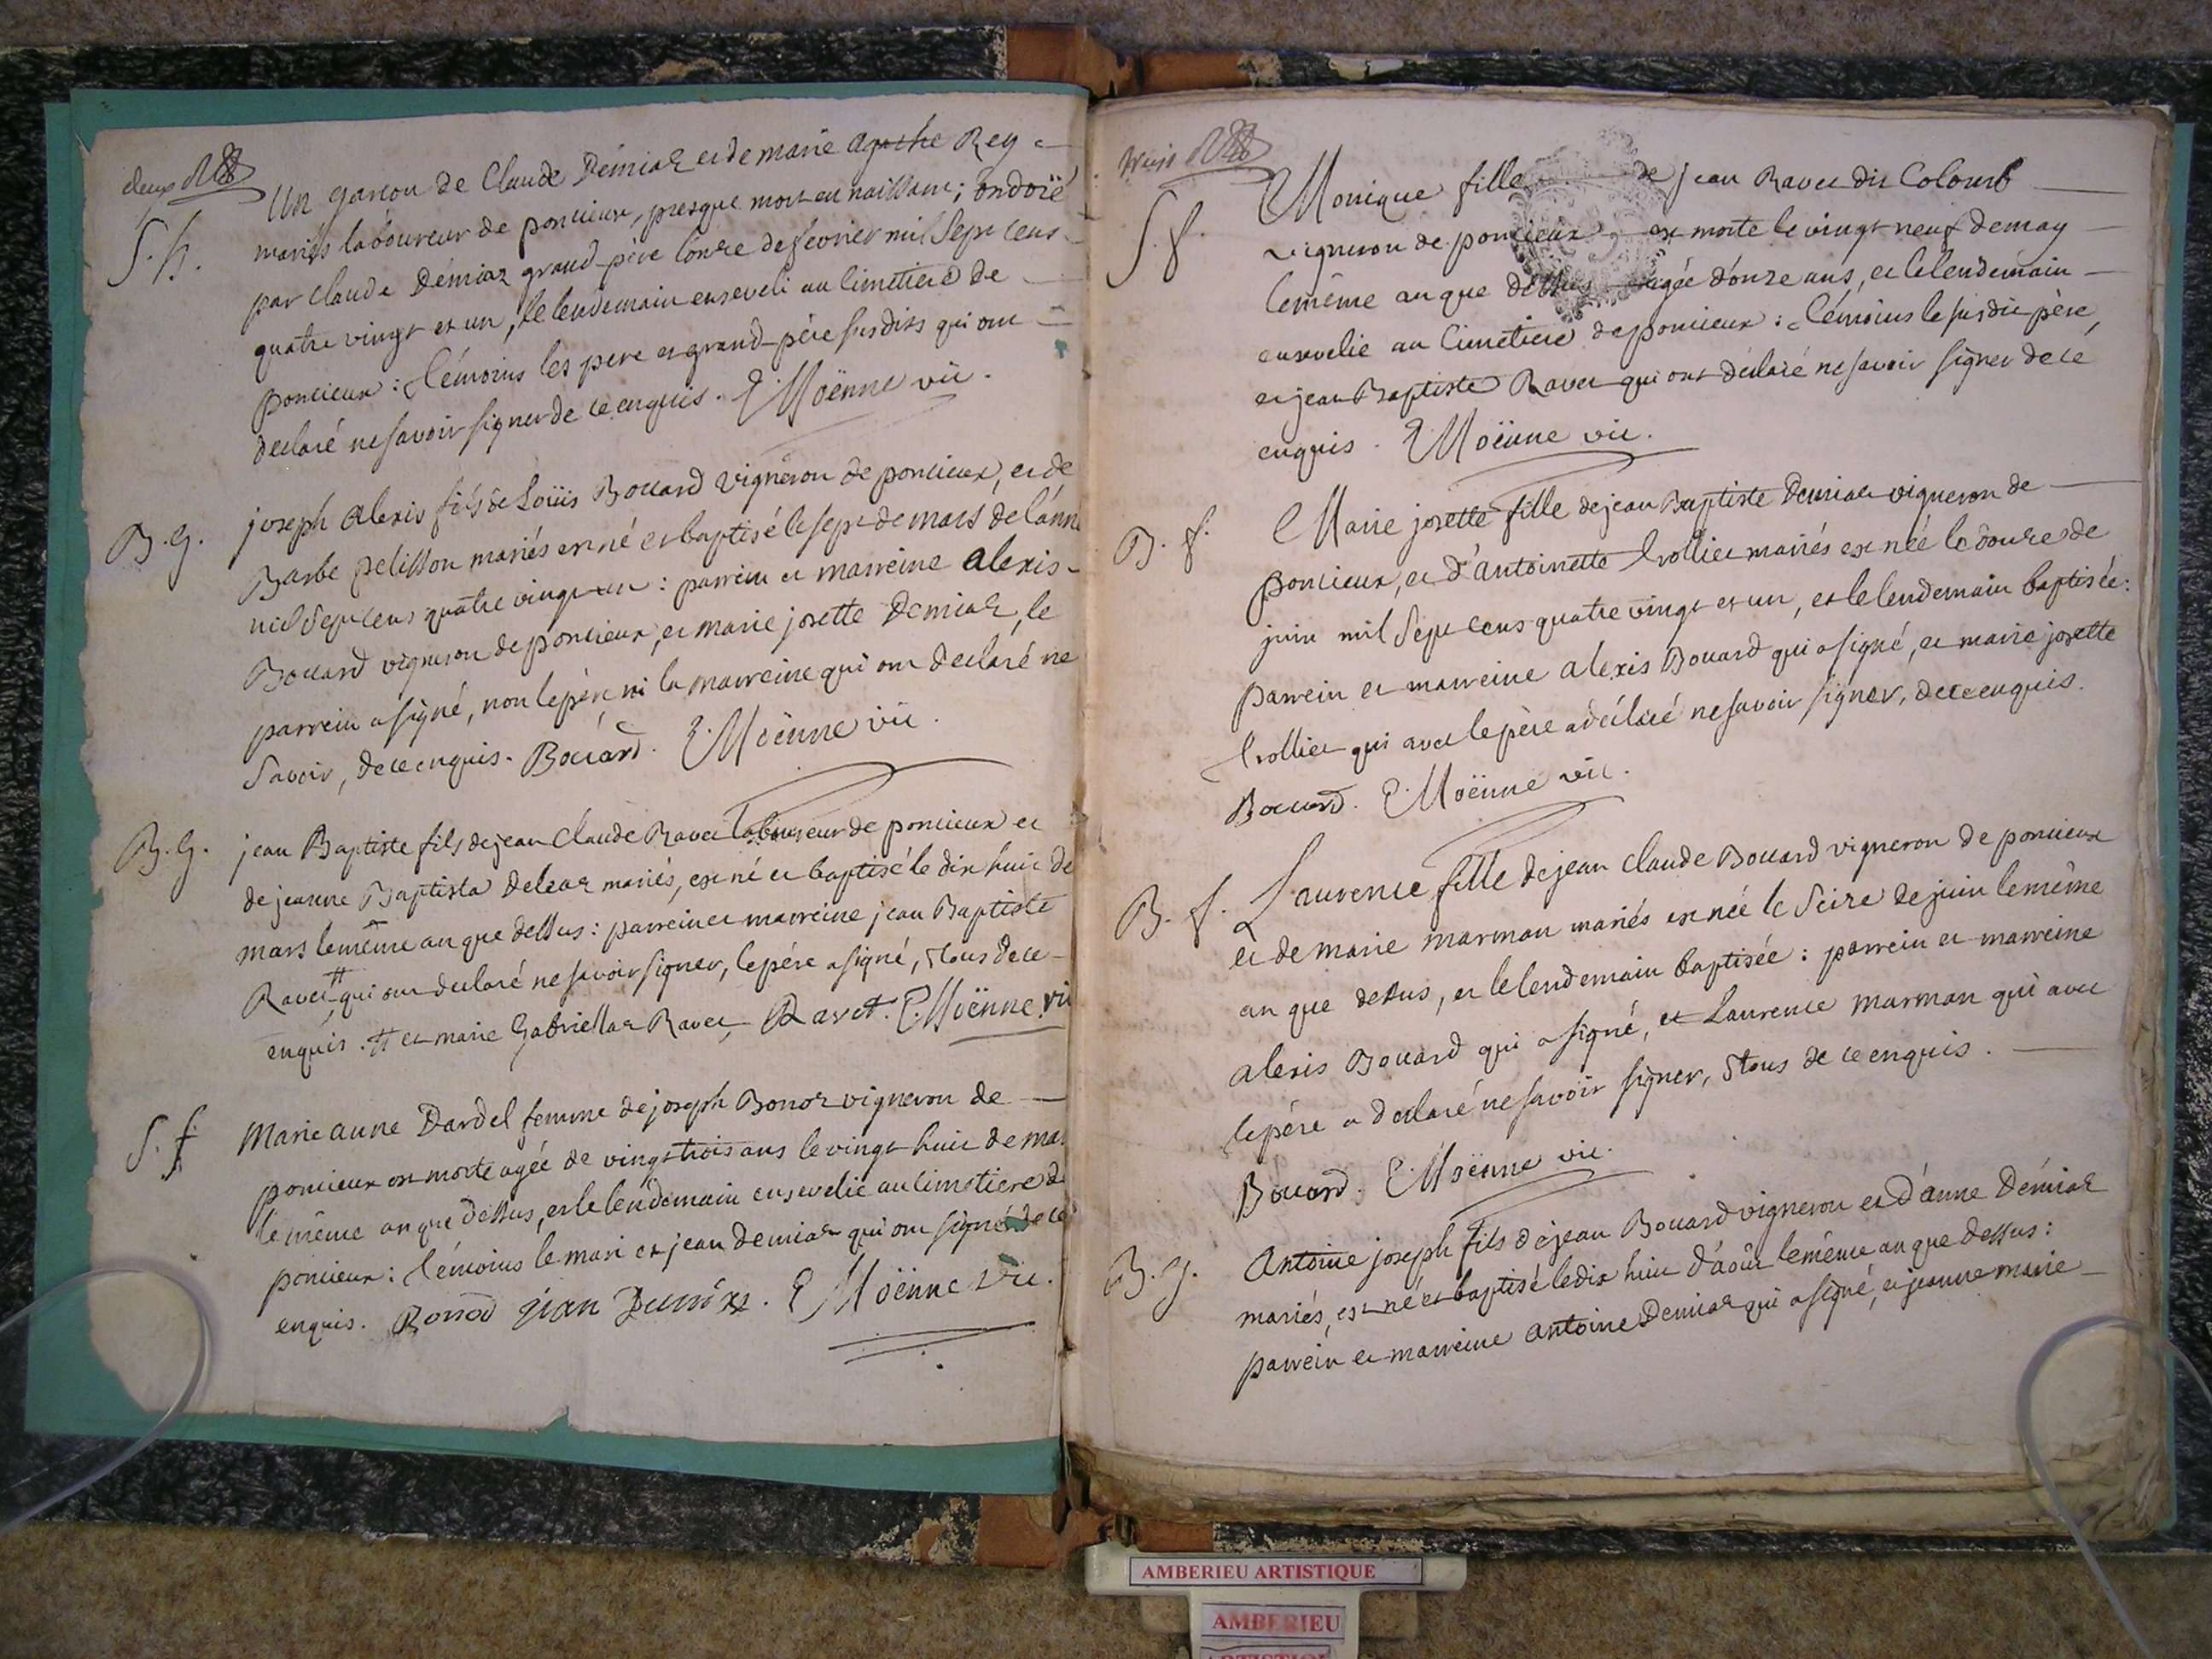 deux
S. h.
Un garcon de Claude Démiaz et de marie agathe Rey
mariés laboureur de poncieux, presque mort en naissant; ondoïé
par claude Démiaz grand-père l'onze de février mil sept cens
quatre vingt et un, le lendemain enseveli au cimetiere de
poncieux: témoins les pere et grand-père susdits qui ont
declaré ne savoir signer de ce enquis. Moënne vic.
B. g.
joseph Alexis fils de Loüis Bouard vigneron de poncieux, et de
Barbe pelisson mariés est né et baptisé le sept de mars de l'anné
mil sept cens quatre vingt un: parrein et marreine alexis
Bouard vigneron de poncieux, et marie josette Demiaz, le
parrein a signé, non le père, ni la marreine qui ont declaré ne
savoir, de ce enquis. Boüard. Moënne vic.
B. g.
jean Baptiste fils de jean Claude Ravet laboureur de poncieux et
de jeanne Baptista deleaz mariés, est né et baptisé le dix huit de
mars le même an que dessus: parrein et marreine jean Baptiste
Ravet # qui ont declaré ne savoir signer, le père a signé, tous de ce
enquis. # et marie Gabriellaz Ravet, Ravet. Moënne vic
S. f
Marie anne Dardel femme de joseph Bonoz vigneron de
poncieux est morte agée de vingt trois ans le vingt huit de mar
le même an que dessus, et le lendemain ensevelie au cimetiere de
poncieux: témoins le mari et jean demiaz qui ont signé de ce
enquis. Bonod jian Demiaz. Moënne vic.
trois
S. f.
Monique fille de jean Ravet dit Colomb
vigneron de poncieux est morte le vingt neuf de may
le même an que dessus agée d'onze ans, et le lendemain
ensevelie au cimetiere de poncieux: témoins le susdit père,
et jean Baptiste Ravet qui ont déclaré ne savoir signer de ce
enquis. Moënne vic.
B. f.
Marie josette fille de jean Baptiste Demiaz vigneron de
poncieux, et d'antoinette trolliet mariés est née le douze de
juin mil sept cens quatre vingt et un, et le lendemain baptisée:
parrein et marreine alexis Bouard qui a signé, et marie josette
trolliet qui avec le père a déclaré ne savoir signer, de ce enquis.
Bouard. Moënne vic.
B. f.
Laurence fille de jean claude Bouard vigneron de poncieux
et de marie marman mariés est née le seize de juin le même
an que dessus, et le lendemain baptisée: parrein et marreine
alexis Bouard qui a signé, et Laurence marman qui avec
le père a declaré ne savoir signer, tous de ce enquis.
Bouard. Moënne vic.
B. g.
Antoine joseph fils de jean Bouard vigneron et d'anne Démiaz
mariés, est né et baptisé le dix huit d'août le même an que dessus:
parrein et marreine antoine Demiaz qui a signé, et jeanne marie
AMBERIEU ARTISTIQUE
AMBERIEU
ARTISTIQUE